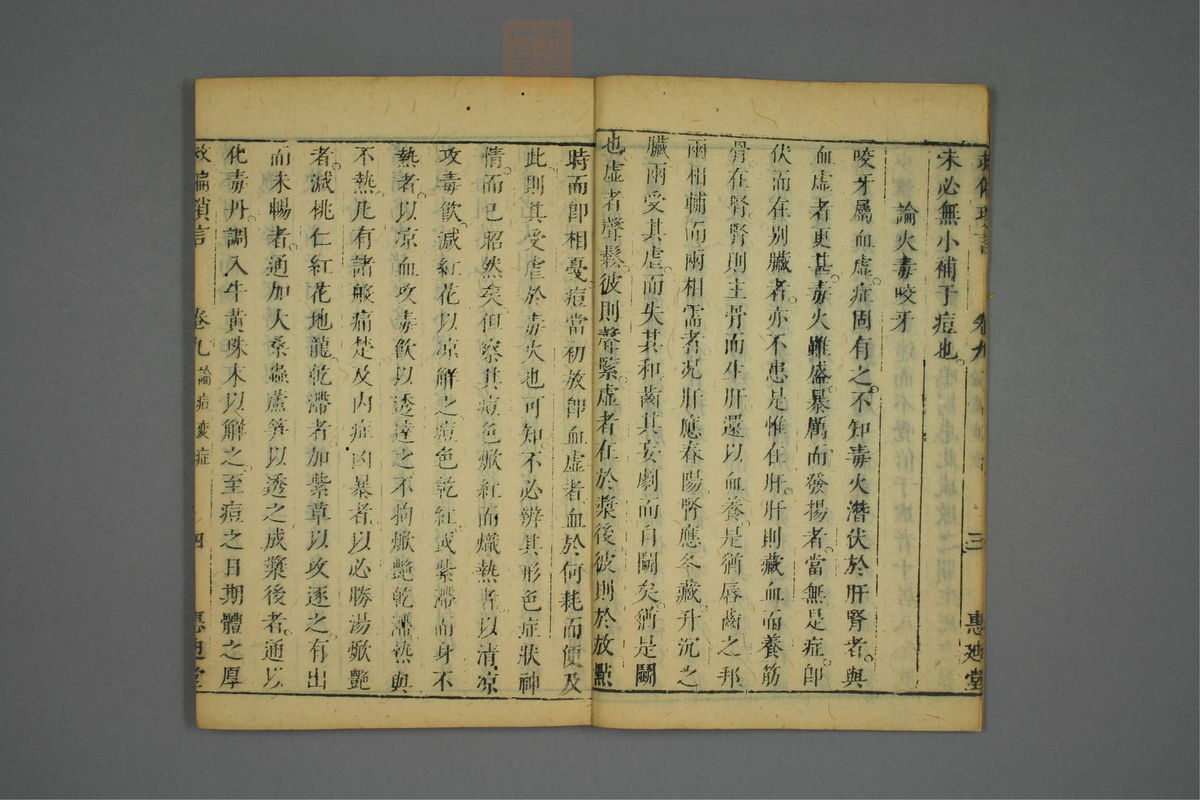 救偏瑣言 卷九 三 惠迪堂
未必無小補于痘也
論火毒咬牙
咬牙屬血虛症固有之不知毒火潛伏於肝腎者與
血虛者更甚毒火雖盛暴厲而發揚者當無是症卽
伏而在別臟者亦不患是惟在肝肝則藏血而養筋
骨在腎腎則主骨而生肝還以血養是猶唇齒之邦
兩相輔而兩相需者况肝應春陽腎應冬藏升沉之
臟兩受其虐而失其和齒其安劇而自鬭矣猶是鬭
也虛者聲鬆彼則聲緊虛者在於漿後彼則於放點
時而卽相憂痘當初放卽血虛者血於何耗而便及
此則其受虐於毒火也可知不必辨其形色症狀神
情而已昭然矣但察其痘色焮紅而熾熱者以清凉
攻毒飲減紅花以凉解之痘色乾紅或紫滯而身不
熱者以凉血攻毒飲以透達之不拘焮艷乾滯熱與
不熱凡有諸般痛楚及內症凶暴者以必勝湯焮艷
者減桃仁紅花地龍乾滯者加紫草以攻逐之有出
而未暢者通加大桑蟲蘆笋以透之成漿後者通以
化毒丹調入牛黃珠末以解之至痘之日期體之厚
救偏瑣言 卷九 論痘變症 四 惠迪堂